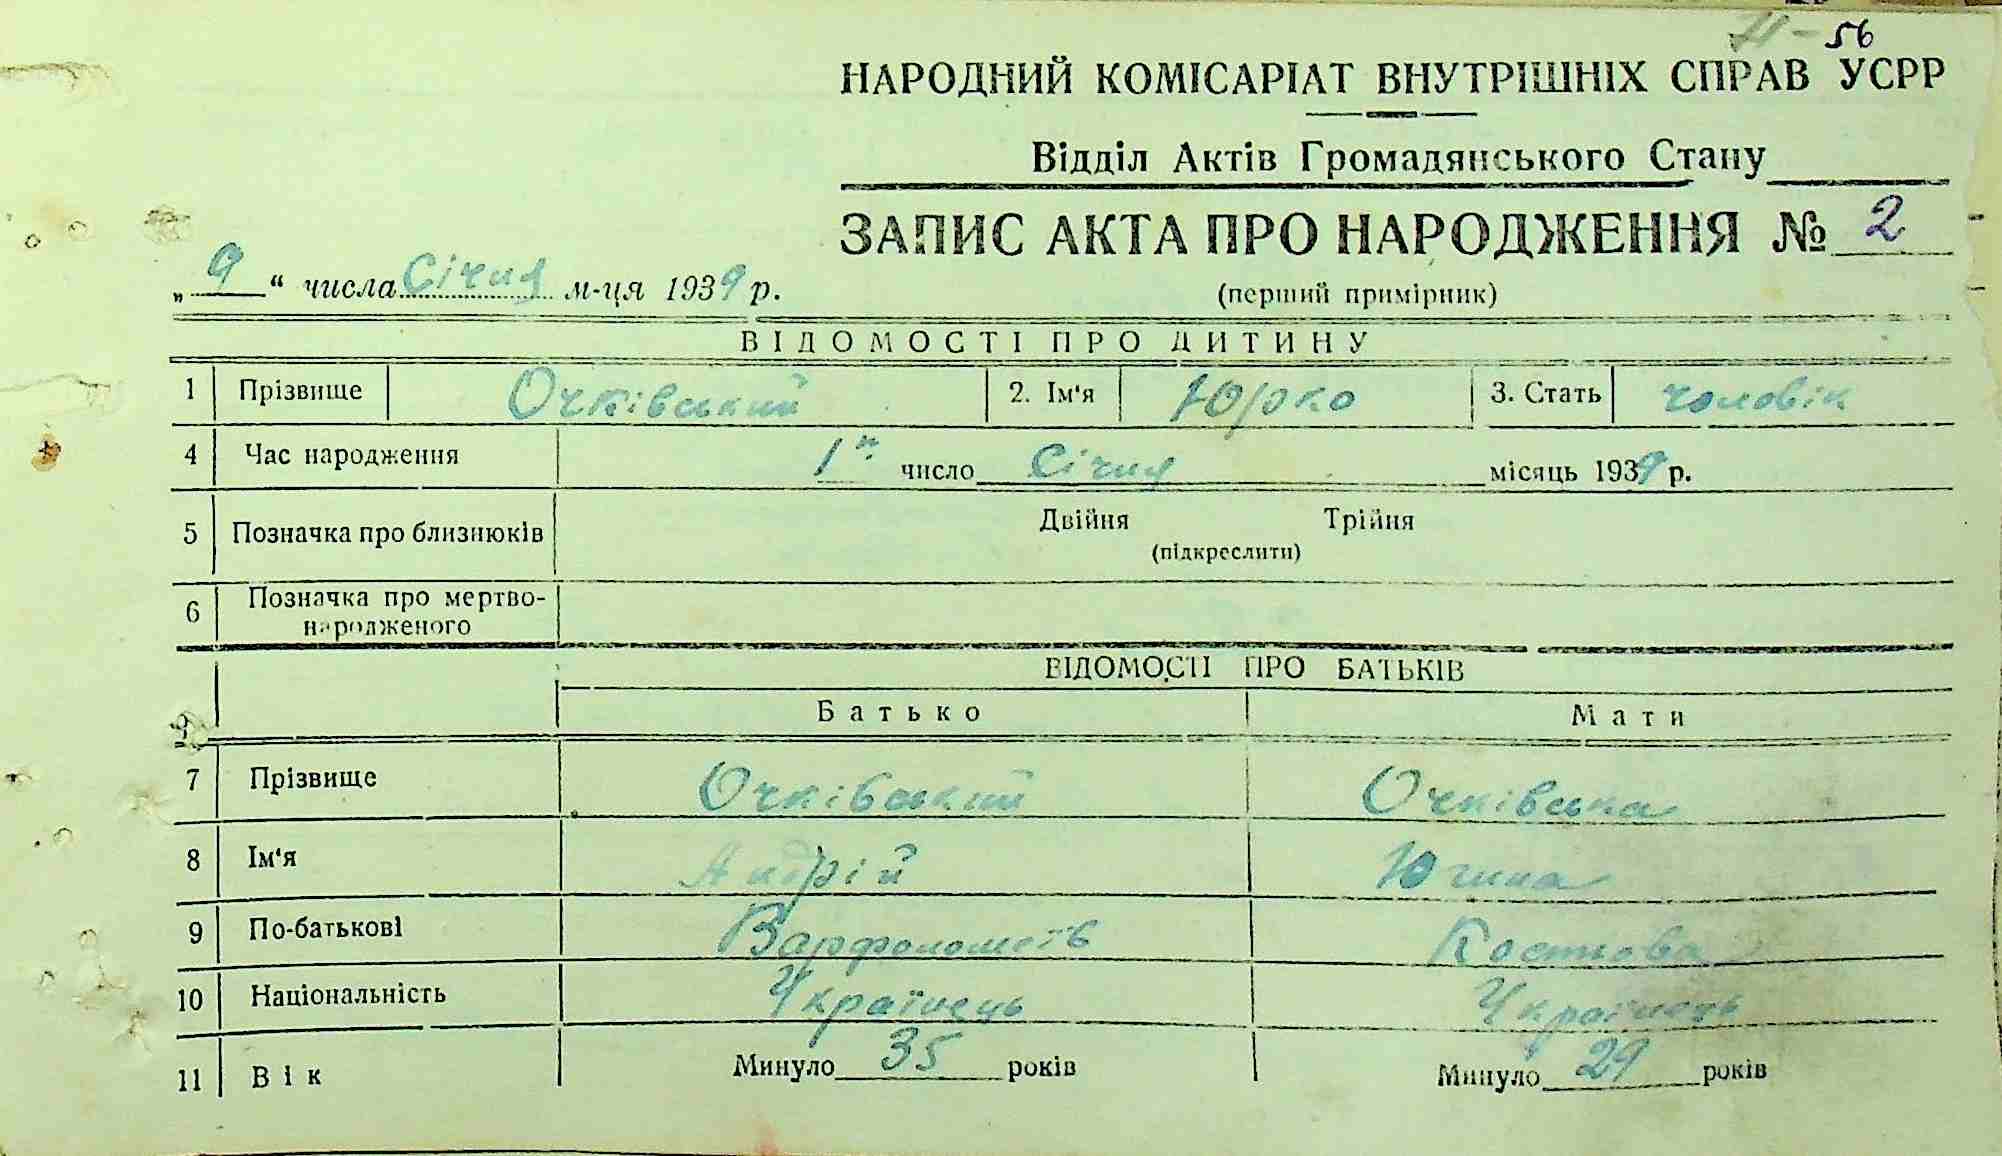 56
НАРОДНИЙ КОМІСАРІАТ ВНУТРІШНІХ СПРАВ УСРР
Відділ Актів Громадянського Стану
ЗАПИС АКТА ПРО НАРОДЖЕННЯ № 2
„ 9 “ числа Січня м-ця 1939 р.
(перший примірник)
ВІДОМОСТІ ПРО ДИТИНУ
1 Прізвище Очківський 2. Ім'я Юрко 3. Стать чоловік
4 Час народження 1 число Січня місяць 1939 р.
5 Позначка про близнюків Двійня Трійня
(підкреслити)
6 Позначка про мертво-
народженого
ВІДОМОСТІ ПРО БАТЬКІВ
Батько Мати
7 Прізвище Очківський Очківська
8 Ім'я Андрій Югина
9 По-батькові Варфоломеїв Костьова
10 Національність Українець Українець
11 Вік Минуло 35 років Минуло 29 років